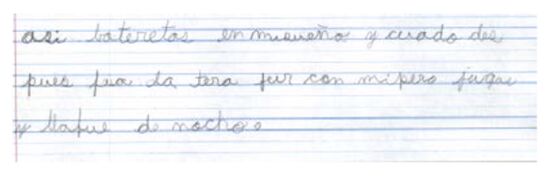 asi bateretas en misueño y cuado des
pues fea la tera fur con mipero jugar
y llafue de nocho.